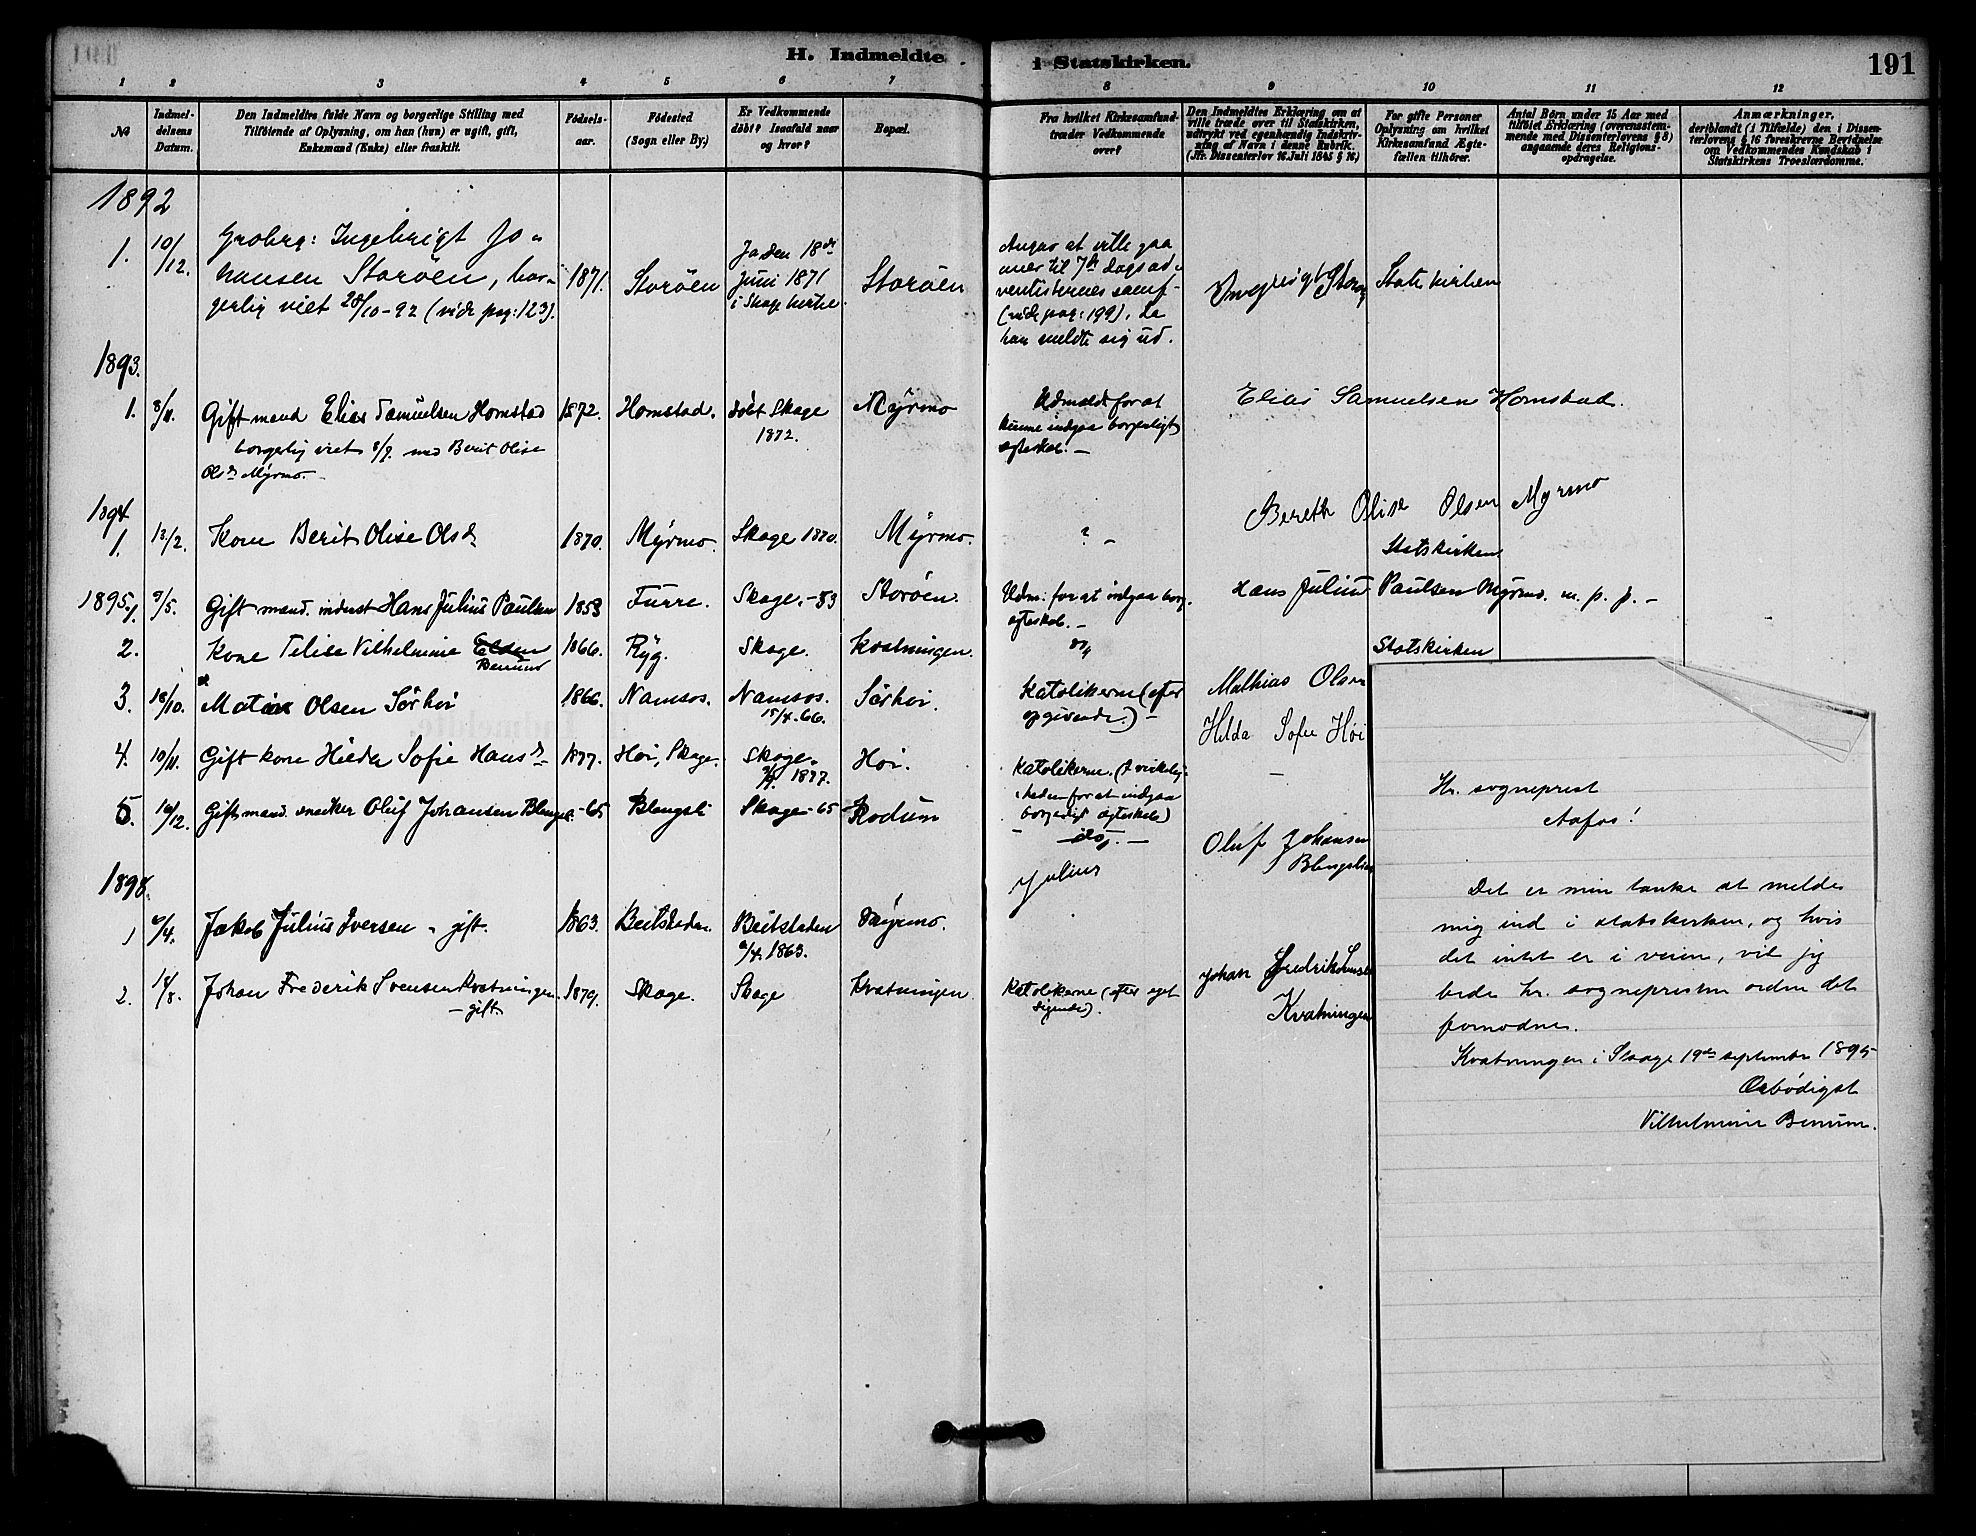 H. Indmeldte i Statskirken.
191
1 2 3 4 5 6 7 8 9 10 11 12
№
Indmel-
delsens
Datum.
Den Indmeldtes fulde Navn og borgerlige Stilling med
Tilføiende af Oplysning, om han (hun) er ugift, gift,
Enkemand (Enke) eller fraskilt.
Fødsels-
aar.
Fødested
(Sogn eller By.)
Er Vedkommende
døbt? Isaafald naar
og hvor?
Bopæl.
Fra hvilket Kirkesamfund
træder Vedkommende
over?
Den Indmeldtes Erklæring om at
ville træde over til Statskirken,
udtrykt ved egenhændig Indskriv-
ning af Navn i denne Rubrik.
(Jfr. Dissenterlov 16 Juli 1845 § 16.)
For gifte Personer
Oplysning om hvilket
Kirkesamfund Ægte-
fællen tilhører.
Antal Børn under 15 Aar med
tilføiet Erklæring (overensstem-
mende med Dissenterlovens § 8)
angaaende deres Religions-
opdragelse.
Anmærkninger,
deriblandt (i Tilfælde) den i Dissen-
terlovens § 16 foreskrevne Bevidnelse
om Vedkommendes Kundskab i
Statskirkens Troeslærdomme.
1892
1. 10/12.
Ingebrigt Jo-
hansen Storöen, bor-
gerlig viet 28/10-92 (vide pag: 123).
1871.
Storöen
Ja den 18de
Juni 1871
i Skage kirke.
Storöen
Angav at ville gaa
over til 7de dags ad-
ventisternes samf-
(vide pag: 199), da
han meldte sig ud.
Statskirken
1893.
1. 8/11.
Gift mand Elias Samuelsen Homstad
borgerlig viet 8/9. med Berit Olise
Olsdr Myrmo.-
1872.
Homstad.
döbt Skage
1872.
Myrmo
Udmeldt for at
kunne indgaa borgerligt
ægteskab. -
Elias Samuelsen Homstad.
1894
1. 13/2.
Kone Berit Olise Olsdr
1870.
Myrmo.
Skage 1870.
Myrmo.
? -
Bereth Olise Olsen Myrmo
Statskirken
1895.
1. 9/5.
Gift mand. inderst Hans Julius Paulsen
1853
Furre.
Skage.-53
Storöen.
Udm. for at indgaa borg.
ægteskab. -
Hans Julius Paulsen Myrmo. m. p. p. -
2.
Kone Telise Vilhelmine Elden
Benum
1866.
Ryg.
Skage.
Kvatningen.
Statskirken
3. 18/10.
Olsen Sörhöi
1866.
Namsos.
Namsos.
15/4.66.
Sörhöi.
Katolikerne (efter
opgivende.) -
Mathias Olsen
4. 10/11.
Gift kone Hilda Sofie Hansdr
1877.
Höi, Skage.
Skage.
1877.
Höi.
Katolikerne. (I virkelig-
heden for at indgaa
borgerligt ægteskab)
Hilda Sofie Höi
5. 10/12.
Gift mand. snedker Oluf Johansen
-65
Blengsli
Skage-65
Rodum
Oluf Johansen
Blengslien
1898.
1 6/4.
Jakob Julius Iversen - gift.
1863.
Beitstaden.
Beitstaden
1863.
Myrmo.
Julius
2. 14/8.
Johan Frederik Svensen Kvatningen.
- gift.
1879.
Skage.
Skage
Kvatningen
Katolikerne (efter eget
sigende).
Johan Fredrik
Kvatningen
Hr. sogneprest
Aafos!
Det er min tanke at melde
mig ind i statskirken, og hvis
det intet er i veien, vil jeg
bede hr. sognepresten ordne det
fornødne.
Kvatningen i Skage 19de september 1895
Ærbødigst
Vilhelmine Benum.